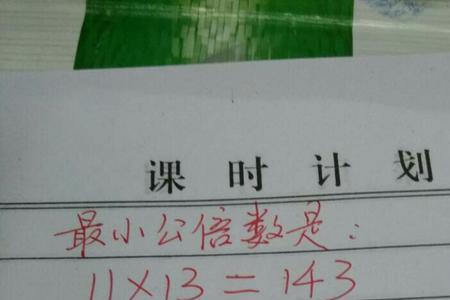 课时计划
最小公倍数是:
11×13=143